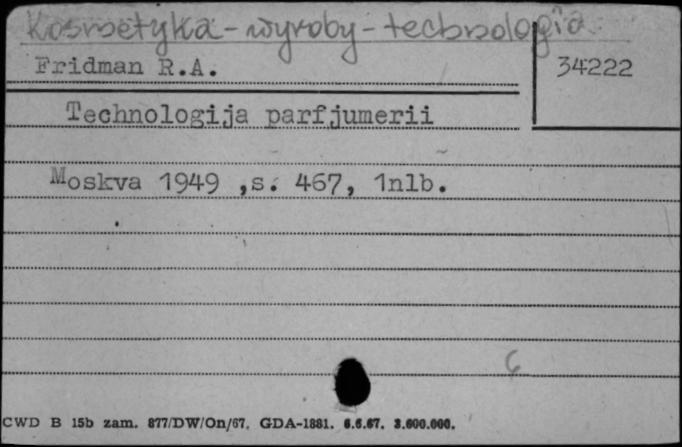 Kosmetyka - wyroby - technologia
Fridman R.A.
34222
Technologija parfjumerii
Moskva 1949 ,s. 467, 1nlb.
6
CWD B 15b zam. 877/DW/On/67. GDA-1881. 6.6.67. 3.600.000.